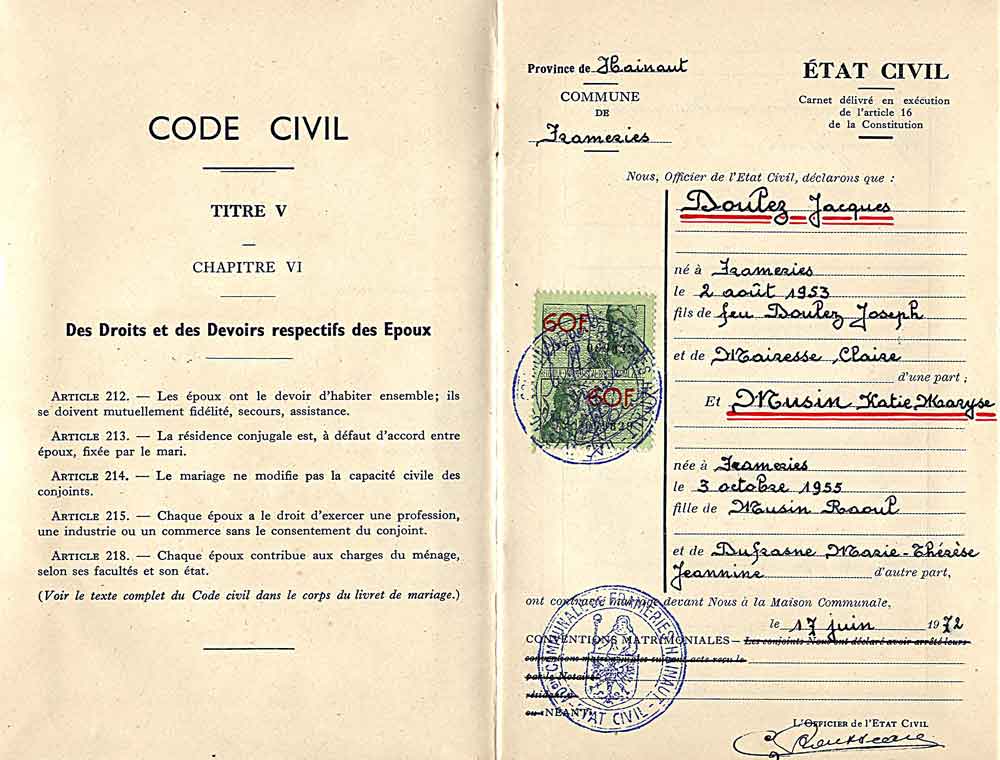 CODE CIVIL
TITRE V
CHAPITRE VI
Des Droits et des Devoirs respectifs des Epoux
ARTICLE 212. — Les époux ont le devoir d'habiter ensemble; ils
se doivent mutuellement fidélité, secours, assistance.
ARTICLE 213. — La résidence conjugale est, à défaut d'accord entre
époux, fixée par le mari.
ARTICLE 214. — Le mariage ne modifie pas la capacité civile des
conjoints.
ARTICLE 215. — Chaque époux a le droit d'exercer une profession,
une industrie ou un commerce sans le consentement du conjoint.
ARTICLE 218. — Chaque époux contribue aux charges du ménage,
selon ses facultés et son état.
(Voir le texte complet du Code civil dans le corps du livret de mariage.)
Province de Hainaut
COMMUNE
DE
Frameries
ÉTAT CIVIL
Carnet délivré en exécution
de l'article 16
de la Constitution
Nous, Officier de l'Etat Civil, déclarons que :
Doulez Jacques
né à Frameries
le 2 août 1953
fils de feu Doulez Joseph
et de Mairesse Claire
d'une part ;
Et Musin Katie Maaryse
60F
60F
née à Frameries
le 3 octobre 1955
fille de Musin Raoul
et de Dufrasne Marie-Thérèse
Jeannine d'autre part,
ont contracté mariage devant Nous à la Maison Communale,
le 17 juin 1972
CONVENTIONS MATRIMONIALES — Les conjoints Nous ont déclaré avoir arrêté leurs
conventions matrimoniales suivant acte reçu le
par le Notaire
résidant à
ou NÉANT
ÉTAT CIVIL
L'OFFICIER de l'ETAT CIVIL